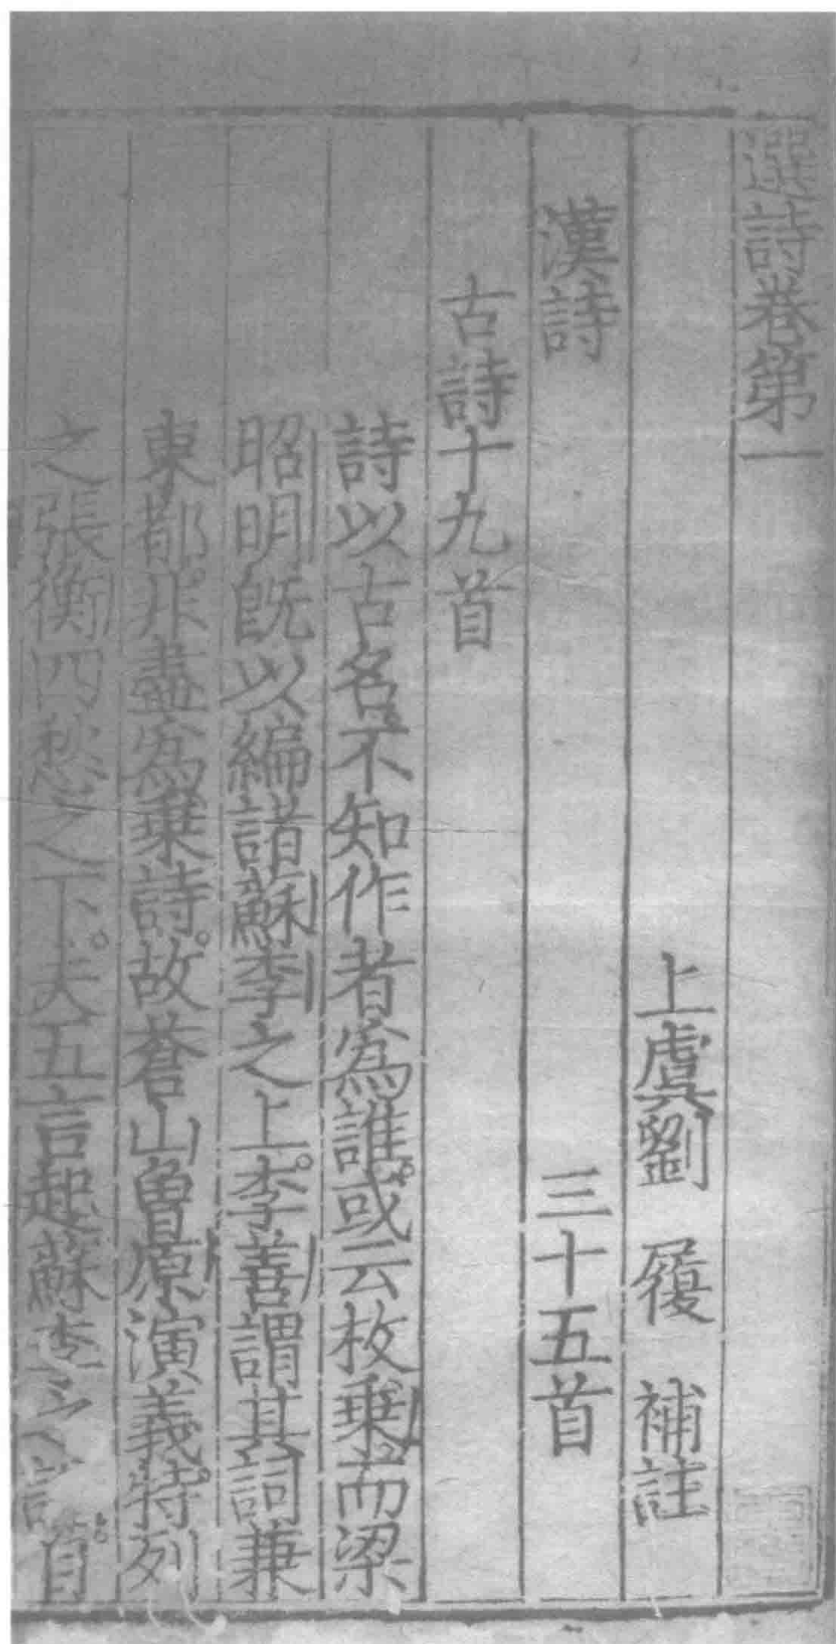 選詩卷第一
上虞劉 履 補註
漢詩 三十五首
古詩十九首
詩以古名不知作者爲誰或云枚乗而梁
昭明旣以編諸蘇李之上李善謂其詞兼
東都非盡爲乗詩故蒼山曾原演義特列
之張衡四愁之下夫五言起蘇李之